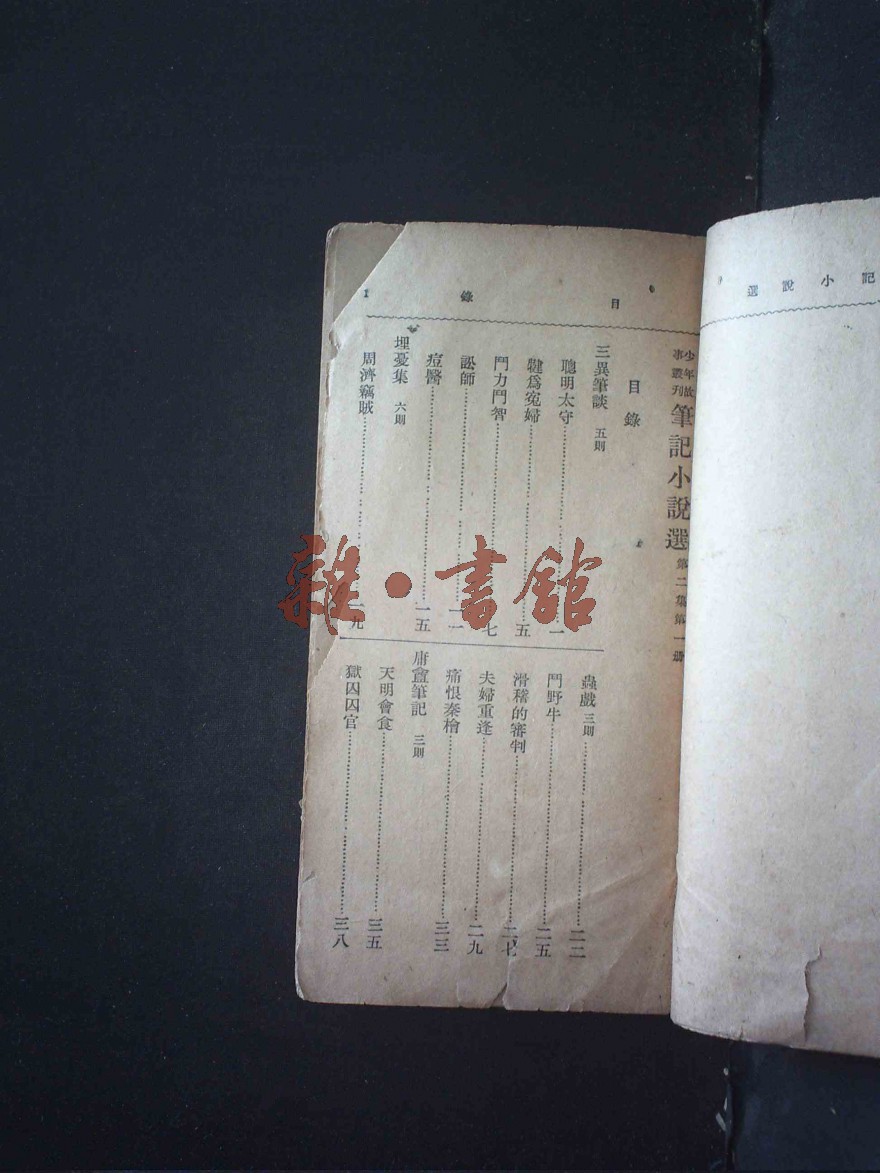 選說小記
1 錄目
少年故事叢刊 筆記小說選 第二集第一册
目錄
三異筆談 五則
聰明太守 一
健為寃婦 五
鬥力鬥智 七
訟師 一一
痘醫 一五
埋憂集 六則
周濟竊賊 一九
蟲戲 三則 二二
鬥野牛 二五
滑稽的審判 二七
夫婦重逢 二九
痛恨秦檜 三三
庸盦筆記 三則
天明會食 三五
獄囚囚官 三八
雜·書館